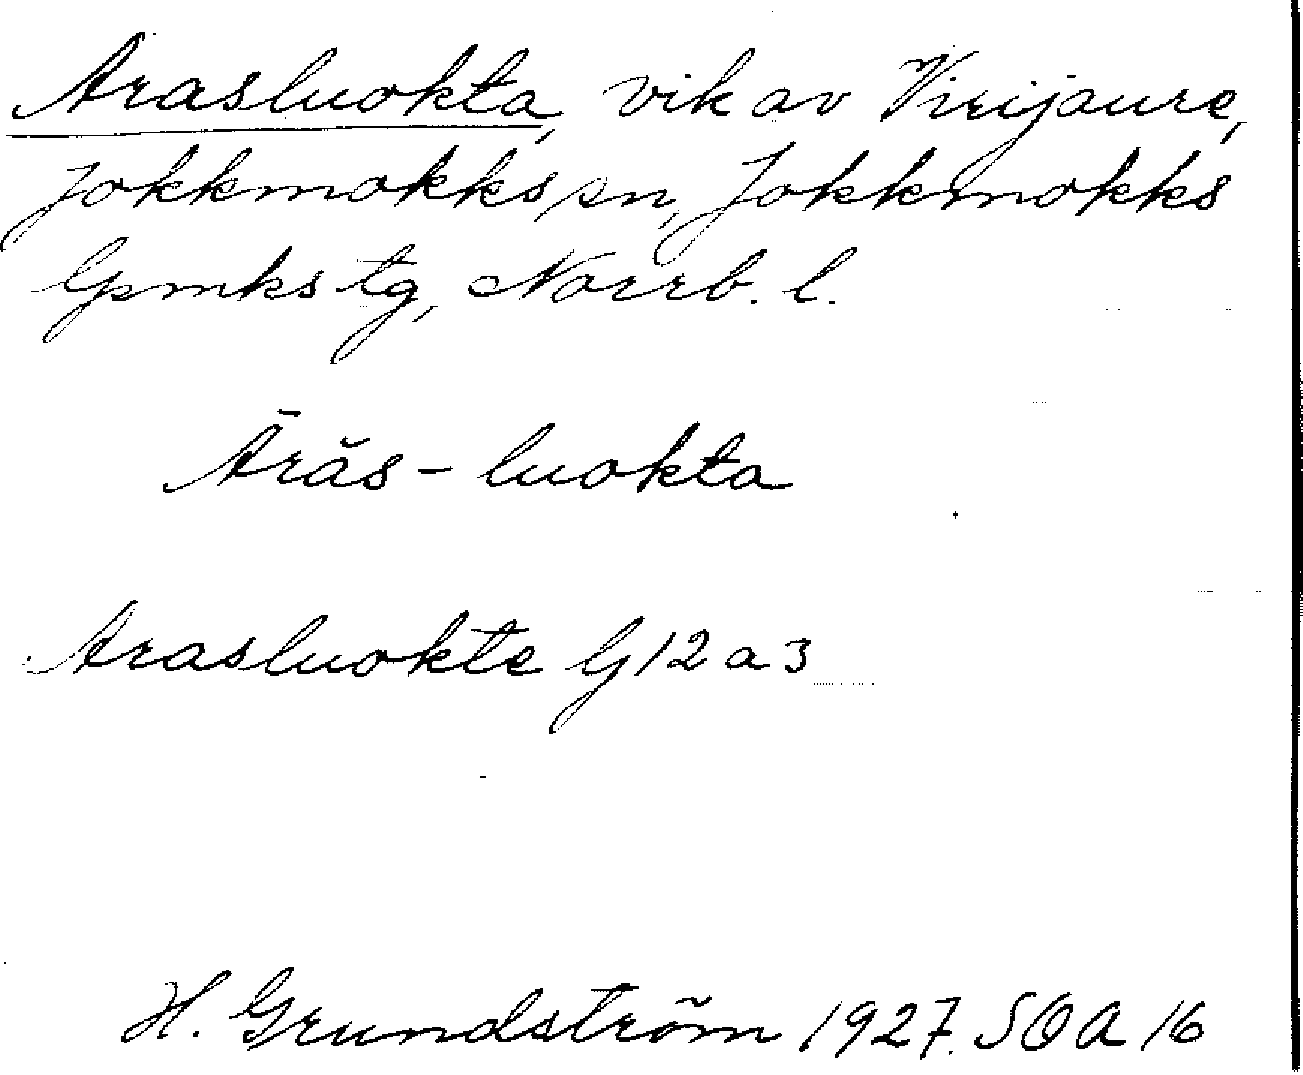 Arasluokta, vik av Virijaure,
Jokkmokks sn, Jokkmokks
lpmks tg, Norrb. l.
Ārăs-luokta
Arasluokte G12a3
H. Grundström 1927. SOA 16